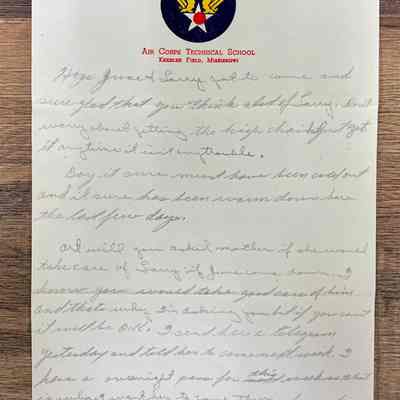 AIR CORPS TECHNICAL SCHOOL
KEESLER FIELD, MISSISSIPPI
Hope June & Larry get to come and
sure glad that you think a lot of Larry. Don't
worry about getting the high chair get
it anytime it isn't any trouble.
Boy it sure must have been cold out
and it sure has been warm down here
the last few days.
will you ask mother if she would
take care of Larry if June come down. I
know you would take good care of him
and thats why I'm asking you but if you can't
it will be O.K. I send her a telegram
yesterday and told her to come next week. I
have a overnight pass for this week so that